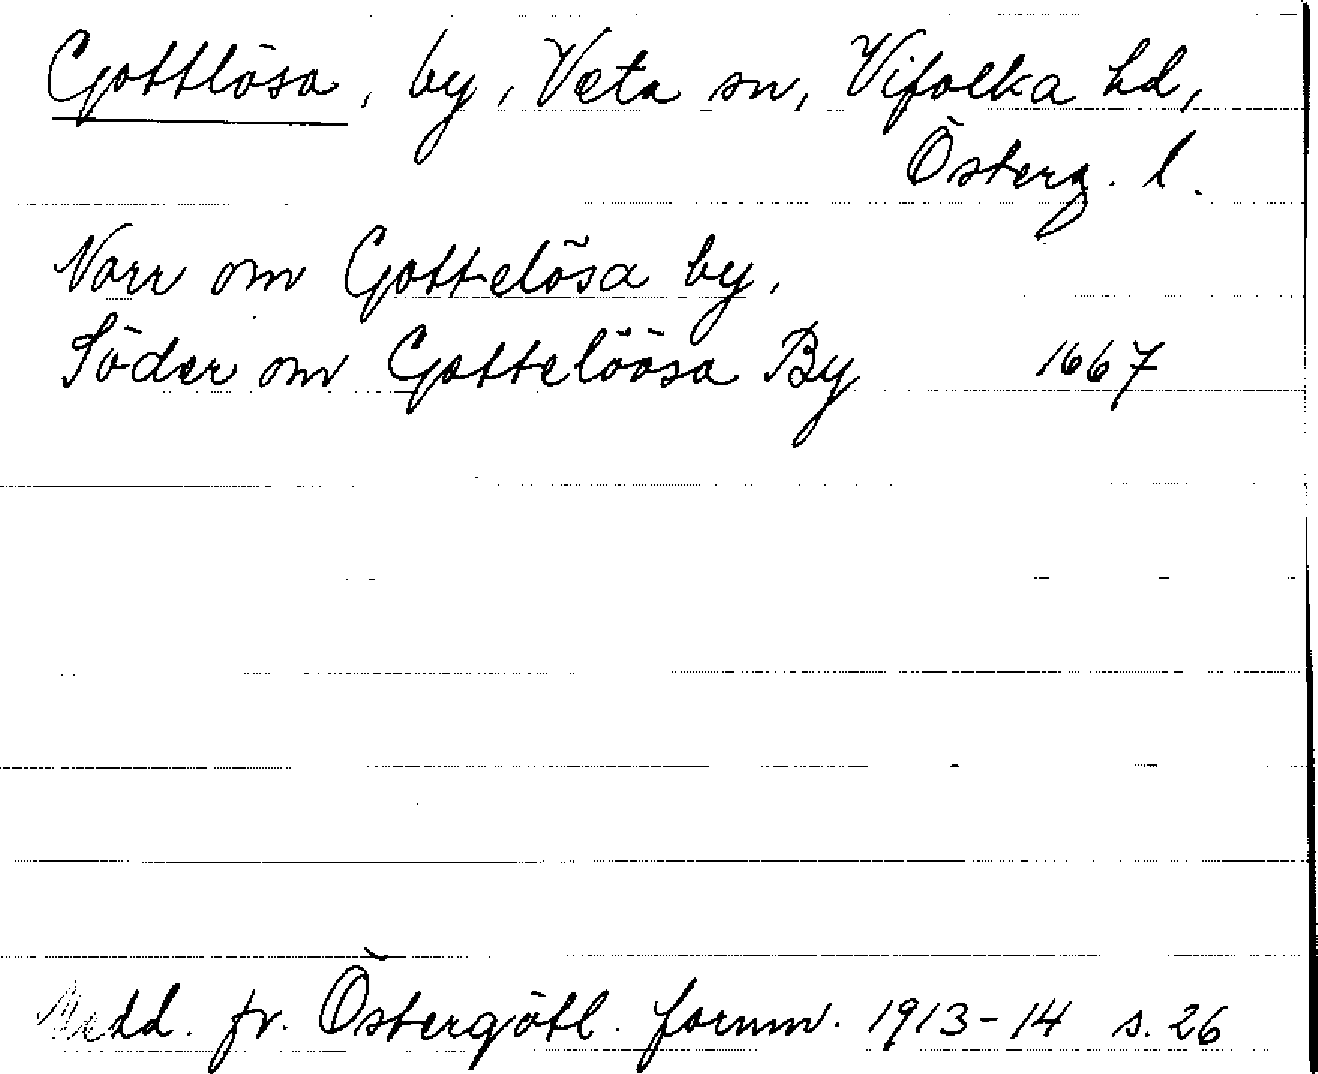 Gottlösa, by, Veta sn, Vifolka hd,
Österg. l.
Norr om Gottelösa by.
Söder om Gottelöösa By 1667
Medd. fr. Östergötl. fornm. 1913-14 s. 26